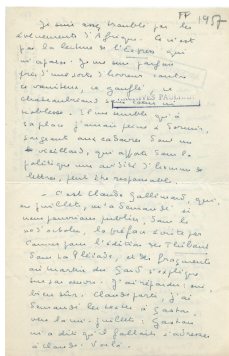 FP 1957
Je suis assez troublé par les
événements d'Afrique. Ce n'est
pas la lecture de l'Express qui
m'apaise. Je me sens parfois
près d'une sorte d'horreur contre
ce vaniteux, ce gonflé, ce
chateaubriand sans talent ni
noblesse. Il me semble qu'à
sa place j'aurais peine à dormir,
sergent aux cadavres
vieillard, qui apporte dans la
politique une avidité d'homme de
lettres, peut être responsable.
C'est Claude Gallimard, qui,
en juillet, m'a demandé si
nous pouvions publier, dans le
no d'octobre, la préface écrite par
Camus pour l'édition des Thibault
dans La Pléiade, et des fragments
où Martin du Gard s'explique
sur ses œuvres. J'ai répondu: oui
bien sûr. Claude parti, j'ai
demandé les textes à Gaston,
vers la mi-juillet. Gaston
m'a dit qu'il fallait s'adresser
à Claude. Voilà.